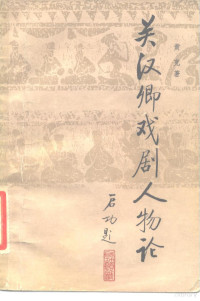 关汉卿戏剧人物论
黄克著
启功题